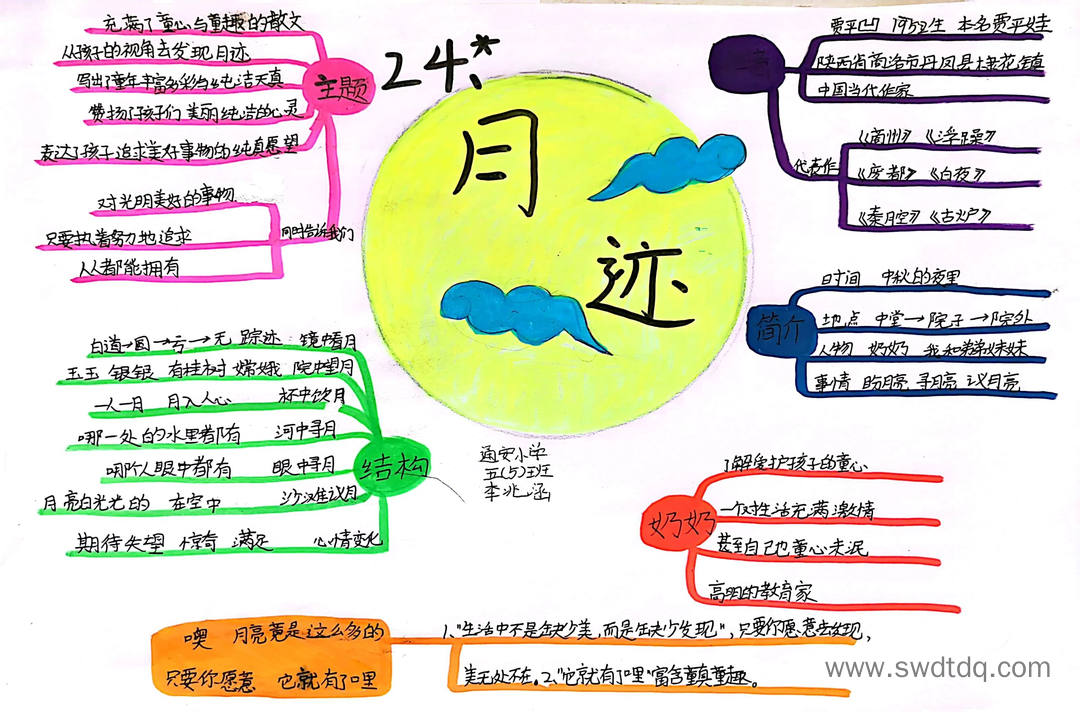 24*
月
迹
主题
充满了童心与童趣的散文
从孩子的视角去发现月迹
写出了童年丰富多彩与纯洁天真
赞扬了孩子们美丽纯洁的心灵
表达了孩子追求美好事物的纯真愿望
同时告诉我们
对光明美好的事物
只要执着努力地追求
人人都能拥有
贾平凹 1952生 本名贾平娃
陕西省商洛市丹凤县棣花镇
中国当代作家
代表作
《商州》《浮躁》
《废都》《白夜》
《秦腔》《古炉》
简介
时间 中秋的夜里
地点 中堂→院子→院外
人物 奶奶 我和弟弟妹妹
事情 盼月亮 寻月亮 议月亮
结构
白道→圆→亏→无 踪迹 镜中看月
玉玉 银银 有桂树 嫦娥 院中望月
一人一月 月入人心 杯中饮月
哪一处的水里都有 河中寻月
哪个人眼中都有 眼中寻月
月亮白光光的 在空中 沙滩议月
期待 失望 惊奇 满足 心情变化
通安小学
五(5)班
李兆涵
奶奶
了解爱护孩子的童心
一个对生活充满激情
甚至自己也童心未泯
高明的教育家
噢 月亮竟是这么多的
只要你愿意 它就有了哩
1、"生活中不是缺少美,而是缺少发现",只要你愿意去发现,
美无处不在。2、"它就有了哩"富含童真童趣。
www.swdtdq.com